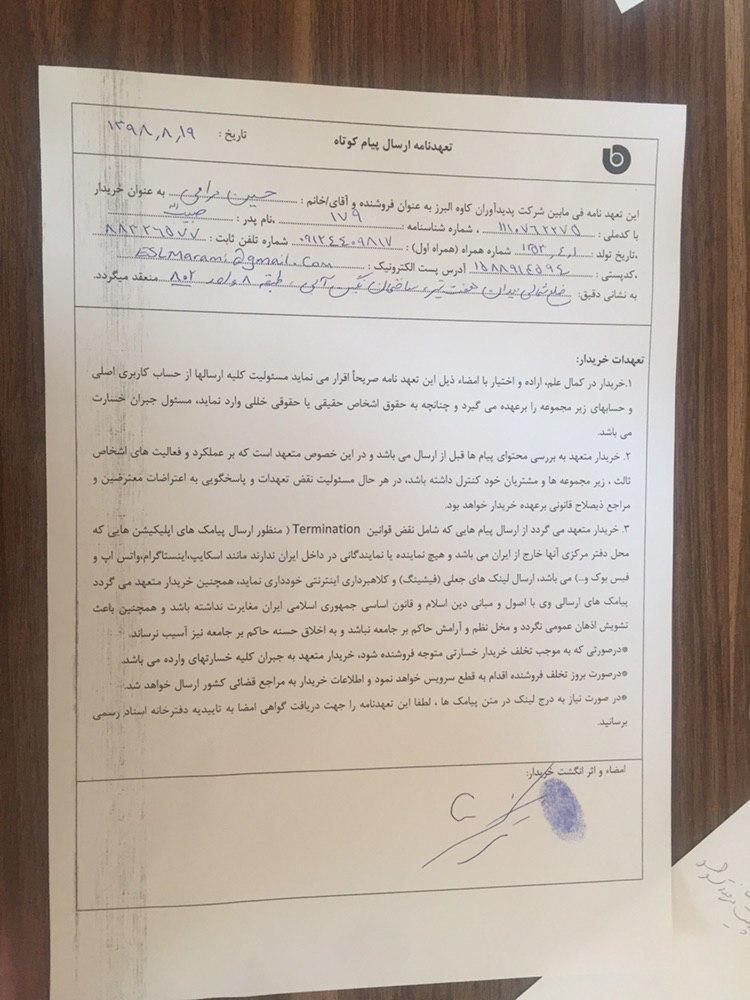 تعهدنامه ارسال پیام کوتاه
تاریخ : ۱۳۹۸,۸,۱۹
این تعهد نامه فی مابین شرکت پدیدآوران کاوه البرز به عنوان فروشنده و آقای/خانم : حسین مرامی به عنوان خریدار
با کدملی : ۱۱۱۰۷۶۲۲۷۵ ، شماره شناسنامه : ۱۷۹ ،نام پدر :
،تاریخ تولد : ۱۳۵۳,۴,۱ شماره همراه (همراه اول) : ۰۹۱۲۴۴۰۹۸۱۷ شماره تلفن ثابت : ۸۸۳۲۶۵۷۷
،کدپستی : ۱۵۸۸۹۱۴۵۹۴ آدرس پست الکترونیک : ESLMarami@gmail.com
به نشانی دقیق: ضلع شمالی میدان هفت تیر، ساختمان نگین آبی ، طبقه ۸ واحد ۸۰۲ منعقد میگردد.
تعهدات خریدار:
۱.خریدار در کمال علم، اراده و اختیار با امضاء ذیل این تعهد نامه صریحاً اقرار می نماید مسئولیت کلیه ارسالها از حساب کاربری اصلی
و حسابهای زیر مجموعه را برعهده می گیرد و چنانچه به حقوق اشخاص حقیقی یا حقوقی خللی وارد نماید، مسئول جبران خسارت
می باشد.
۲. خریدار متعهد به بررسی محتوای پیام ها قبل از ارسال می باشد و در این خصوص متعهد است که بر عملکرد و فعالیت های اشخاص
ثالث ، زیر مجموعه ها و مشتریان خود کنترل داشته باشد، در هر حال مسئولیت نقض تعهدات و پاسخگویی به اعتراضات معترضین و
مراجع ذیصلاح قانونی برعهده خریدار خواهد بود.
۳. خریدار متعهد می گردد از ارسال پیام هایی که شامل نقض قوانین Termination ( منظور ارسال پیامک های اپلیکیشن هایی که
محل دفتر مرکزی آنها خارج از ایران می باشد و هیچ نماینده یا نمایندگانی در داخل ایران ندارند مانند اسکایپ،اینستاگرام،واتس اپ و
فیس بوک و..) می باشد، ارسال لینک های جعلی (فیشینگ) و کلاهبرداری اینترنتی خودداری نماید، همچنین خریدار متعهد می گردد
پیامک های ارسالی وی با اصول و مبانی دین اسلام و قانون اساسی جمهوری اسلامی ایران مغایرت نداشته باشد و همچنین باعث
تشویش اذهان عمومی نگردد و مخل نظم و آرامش حاکم بر جامعه نباشد و به اخلاق حسنه حاکم بر جامعه نیز آسیب نرساند.
*درصورتی که به موجب تخلف خریدار خسارتی متوجه فروشنده شود، خریدار متعهد به جبران کلیه خسارتهای وارده می باشد.
*درصورت بروز تخلف فروشنده اقدام به قطع سرویس خواهد نمود و اطلاعات خریدار به مراجع قضائی کشور ارسال خواهد شد.
*در صورت نیاز به درج لینک در متن پیامک ها ، لطفا این تعهدنامه را جهت دریافت گواهی امضا به تاییدیه دفترخانه اسناد رسمی
برسانید.
امضاء و اثر انگشت خریدار: